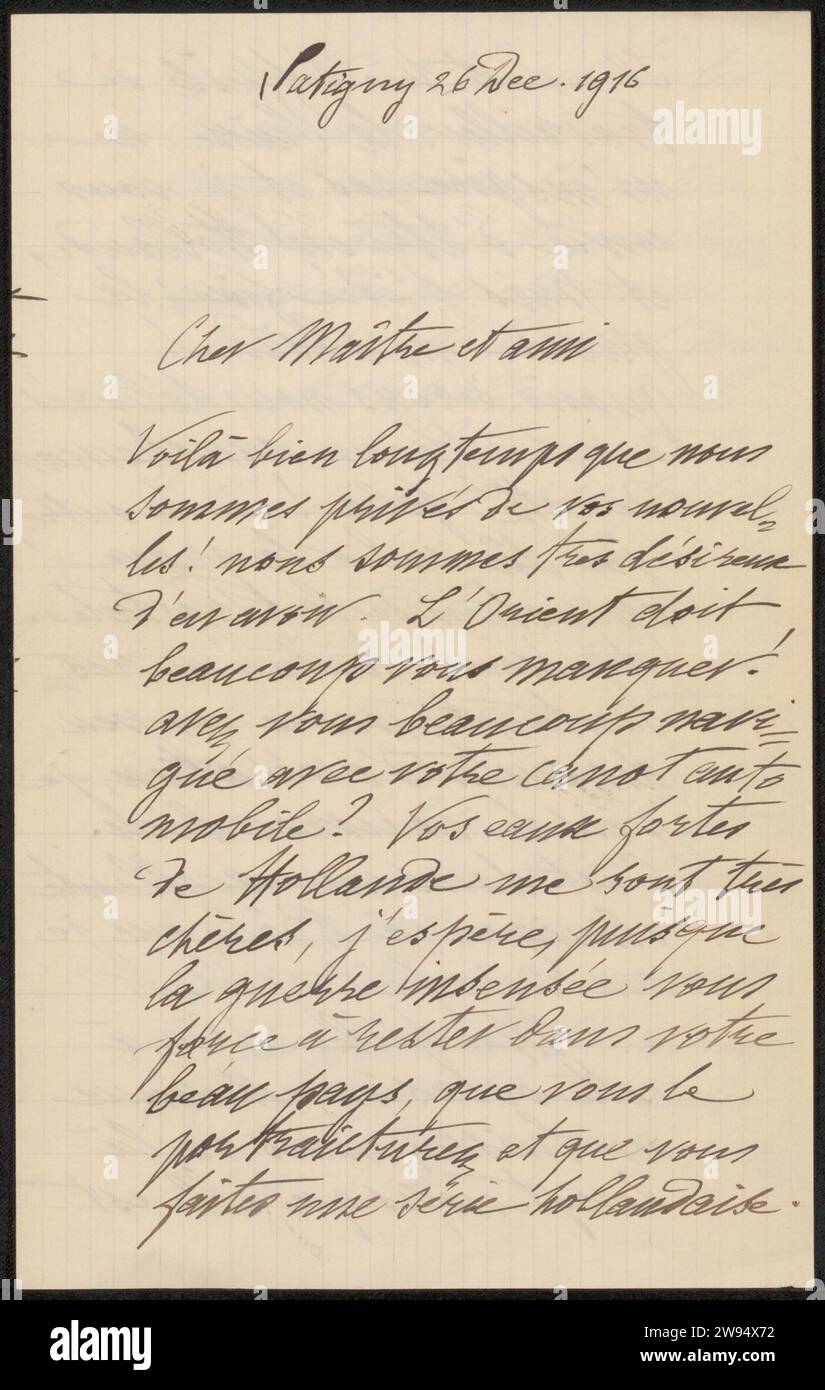 Patigny 26 Dec. 1916
Cher Maître et ami
Voilà bien longtemps que nous
sommes privés de vos nouvel=
les! nous sommes tres désireux
d'en avoir. L'Orient doit
beaucoup vous manquer!
avez vous beaucoup navi=
gué avec votre canot auto
mobile? Vos eaux fortes
de Hollande me sont très
chères, j'espère, puisque
la guerre insensée vous
force à rester dans votre
beau pays, que vous le
portraicturez et que vous
faites une série hollandaise.
alamy
Image ID: 2W94X72
www.alamy.com